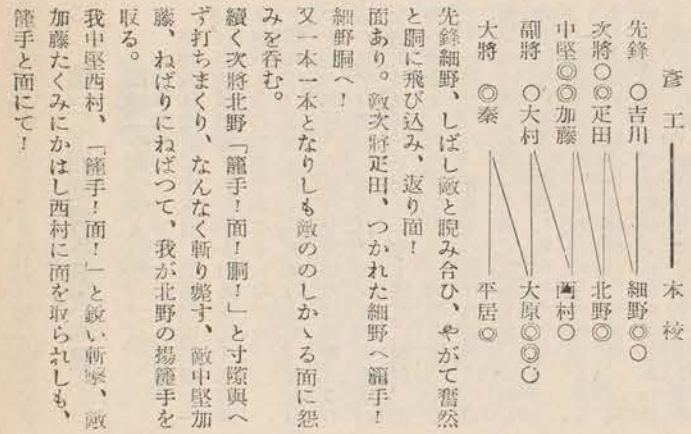 彥工━━本校
先鋒　○吉川　細野◎○
次將○◎疋田　北野◎
中堅◎◎加藤　西村○
副將　○大村　大原◎◎○
大將　◎秦　平居◎
先鋒細野、しばし敵と睨み合ひ、やがて奮然
と胴に飛び込み、返り面！
面あり。敵次將疋田、つかれた細野へ籠手！
細野胴へ！
又一本一本となりしも敵ののしかゝる面に怨
みを呑む。
續く次將北野「籠手！面！胴！」と寸隙與へ
ず打ちまくり、なんなく斬り斃す、敵中堅加
藤、ねばりにねばつて、我が北野の揚籠手を
取る。
我中堅西村、「籠手！面！」と鋭い斬擊、敵
加藤たくみにかはし西村に面を取られしも、
籠手と面にて！